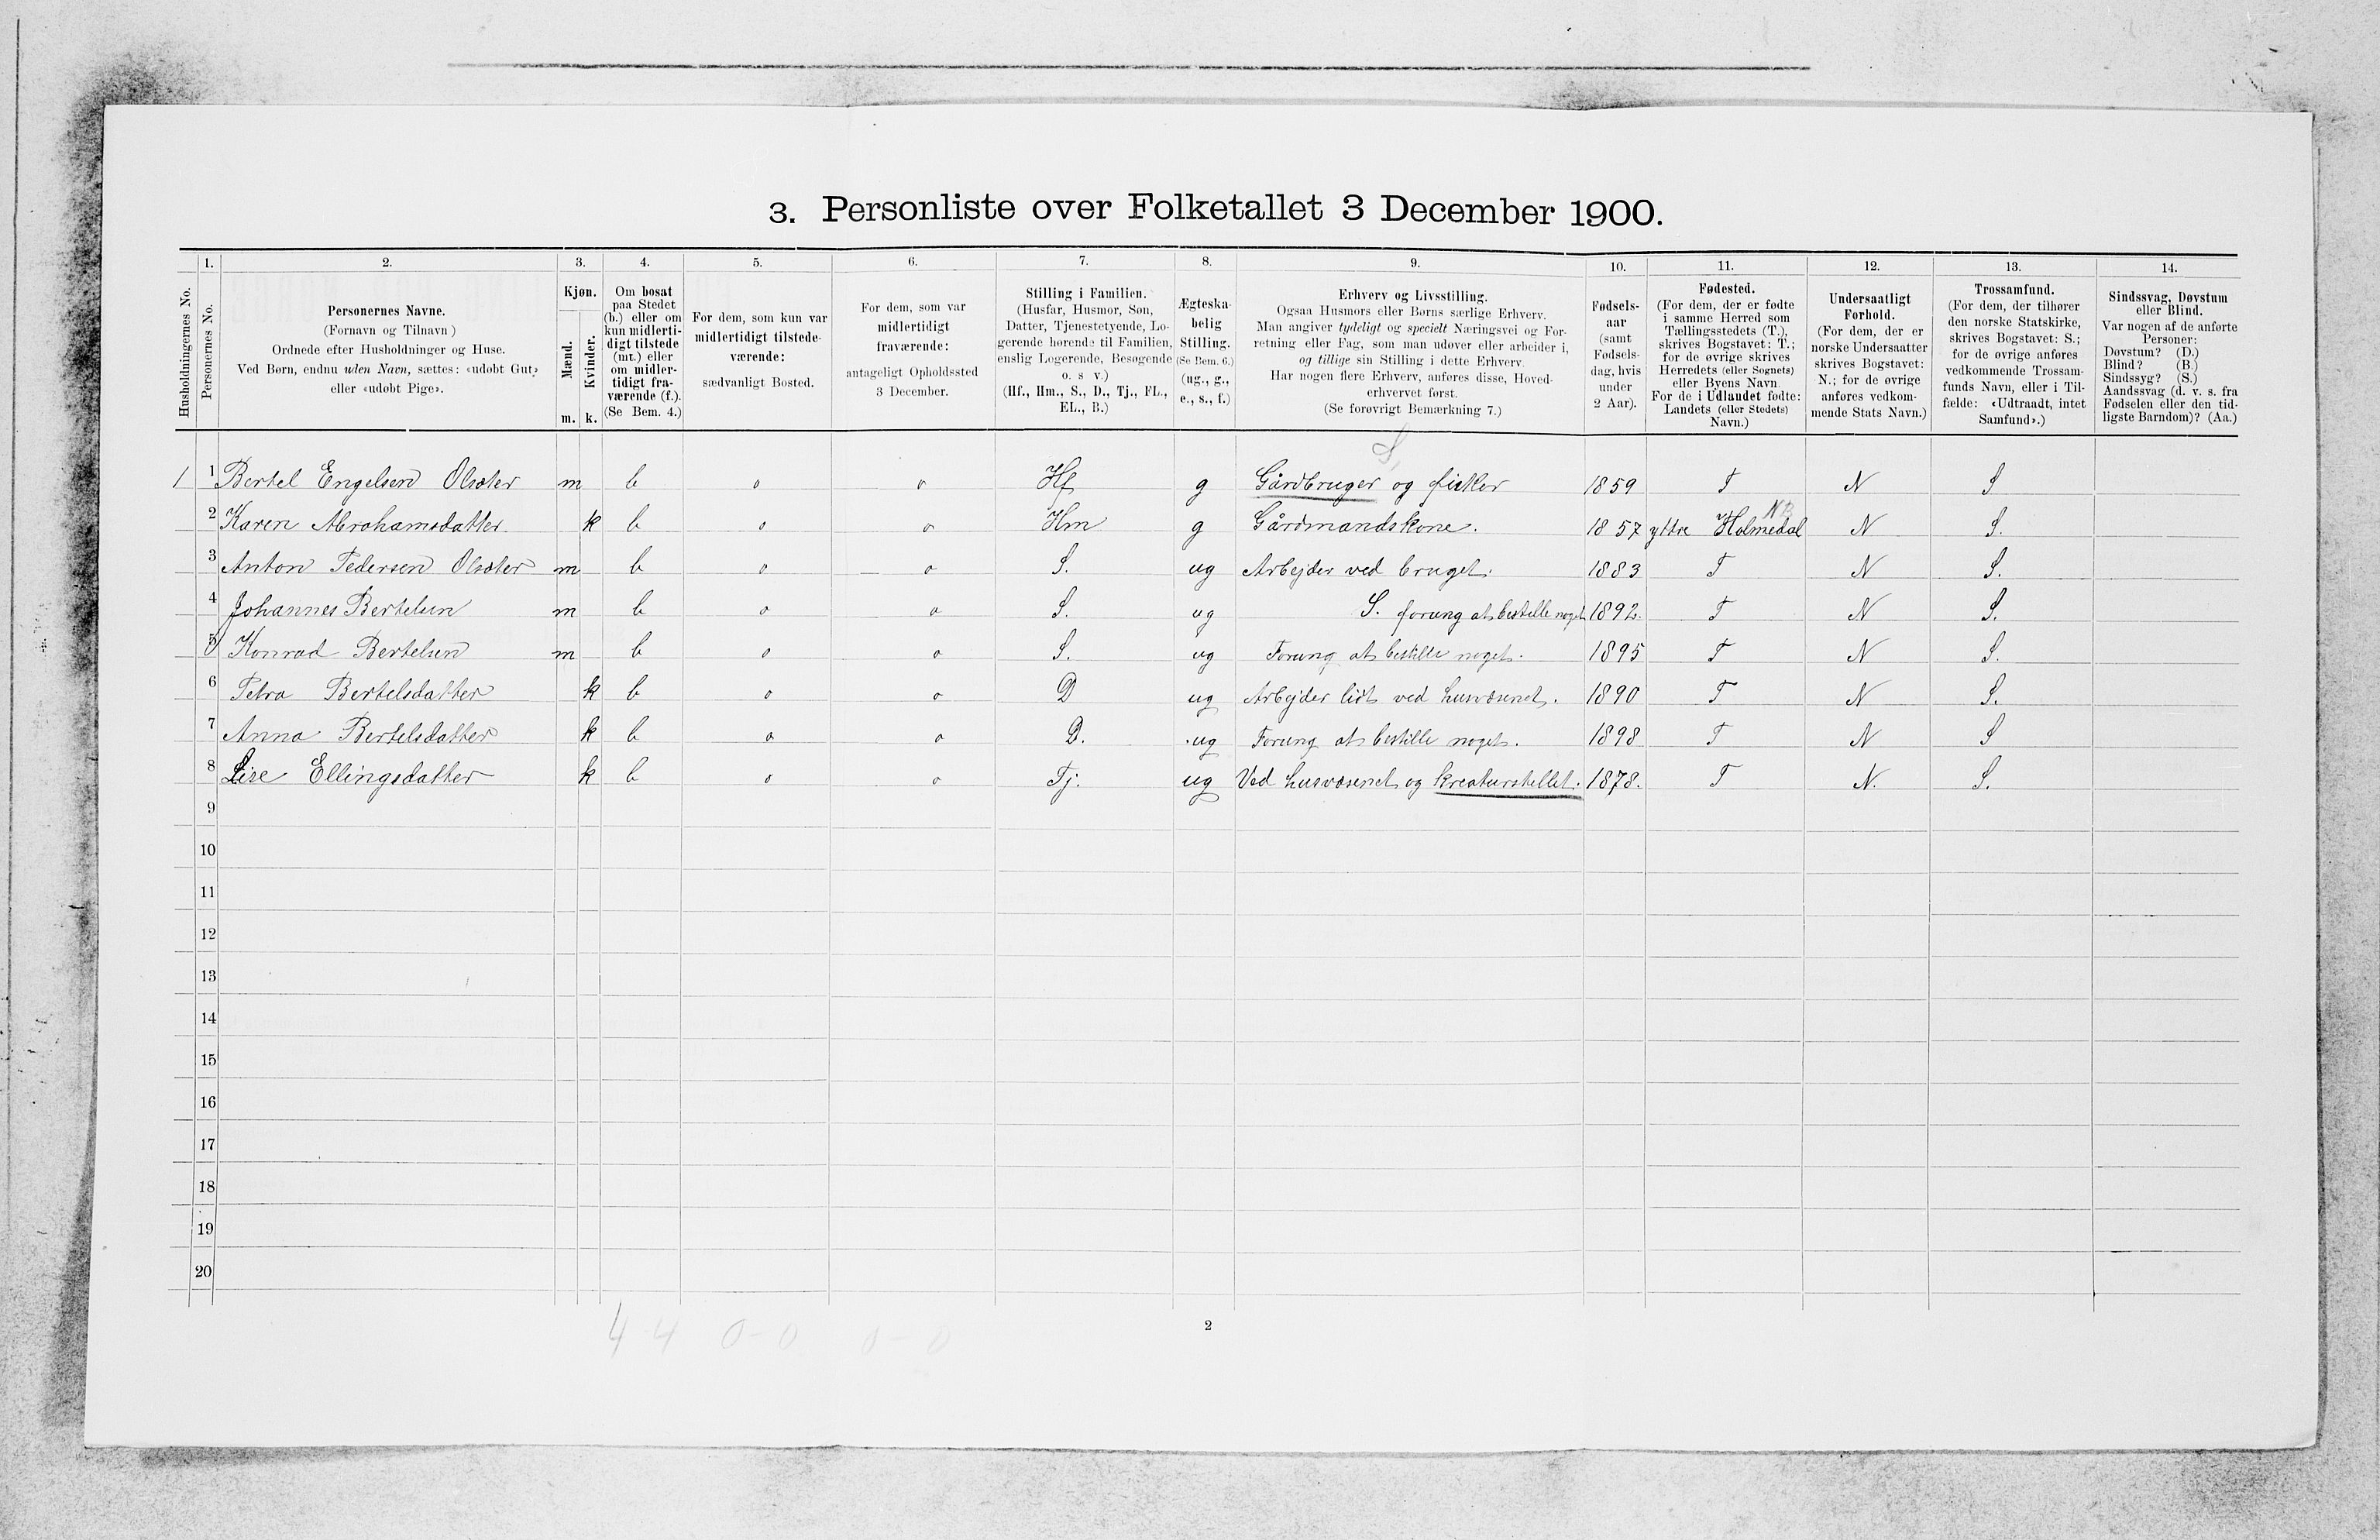 3. Personliste over Folketallet 3 December 1900.
1. 2. 3. 4. 5. 6. 7. 8. 9. 10. 11. 12. 13. 14.
Husholdningernes No.
Personernes No.
Personernes Navne.
(Fornavn og Tilnavn)
Ordnede efter Husholdninger og Huse.
Ved Børn, endnu uden Navn, sættes: «udøbt Gut»
eller «udøbt Pige».
Kjøn.
Mænd.
Kvinder.
m. k.
Om bosat
paa Stedet
(b.) eller om
kun midlerti-
digt tilstede
(mt.) eller
om midler-
tidigt fra-
værende (f.).
(Se Bem. 4.)
For dem, som kun var
midlertidigt tilstede-
værende:
sædvanligt Bosted.
For dem, som var
midlertidigt
fraværende:
antageligt Opholdssted
3 December.
Stilling i Familien.
(Husfar, Husmor, Søn,
Datter, Tjenestetyende, Lo-
gerende hørende til Familien,
enslig Logerende, Besøgende
o. s v.)
(Hf., Hm., S., D., Tj., FL.,
EL., B.)
Ægteska-
belig
Stilling.
(Se Bem. 6.)
(ug., g.,
e., s., f.)
Erhverv og Livsstilling.
Ogsaa Husmors eller Børns særlige Erhverv.
Man angiver tydeligt og specielt Næringsvei og For-
retning eller Fag, som man udøver eller arbeider i,
og tillige sin Stilling i dette Erhverv.
Har nogen flere Erhverv, anføres disse, Hoved-
erhvervet først.
(Se forøvrigt Bemærkning 7.)
Fødsels-
aar
(samt
Fødsels-
dag, hvis
under
2 Aar).
Fødested.
(For dem, der er fødte
i samme Herred som
Tællingsstedets (T.),
skrives Bogstavet: T.;
for de øvrige skrives
Herredets (eller Sognets)
eller Byens Navn.
For de i Udlandet fødte:
Landets (eller Stedets)
Navn.)
Undersaatligt
Forhold.
(For dem, der er
norske Undersaatter
skrives Bogstavet:
N.; for de øvrige
anføres vedkom-
mende Stats Navn.)
Trossamfund.
(For dem, der tilhører
den norske Statskirke,
skrives Bogstavet: S.;
for de øvrige anføres
vedkommende Trossam-
funds Navn, eller i Til-
fælde: «Udtraadt, intet
Samfund».)
Sindssvag, Døvstum
eller Blind.
Var nogen af de anførte
Personer:
Døvstum? (D.)
Blind? (B.)
Sindssyg? (S.)
Aandssvag (d. v. s. fra
Fødselen eller den tid-
ligste Barndom)? (Aa.)
S,
1 1 Bertel Engelsen Olsæter m b o o Hf g Gårdbruger og fisker 1859 T N S
NB
2 Karen Abrahamsdatter k b o o Hm g Gårdmandskone. 1857 yttre Holmedal N S.
3 Anton Pedersen Olsæter m b o o S. ug Arbejder ved bruget. 1883 T N S.
4 Johannes Bertelsen m b o o S. ug S. forung at bestille noget 1892. T N S.
5 Konrad Bertelsen m b o o S. ug Forung at bestille noget. 1895 T N S.
6 Petra Bertelsdatter k b o o D ug Arbejder lidt ved husvæsenet. 1890 T N S.
7 Anna Bertelsdatter k b o o D. ug Forung at bestille noget. 1898 T N S
8 Lise Ellingsdatter k b o o Tj. ug Ved husvæsenet og kreaturstellet. 1878. T N. S.
9
10
11
12
13
14
15
16
17
18
19
20
4-4 0-0 0-0
2